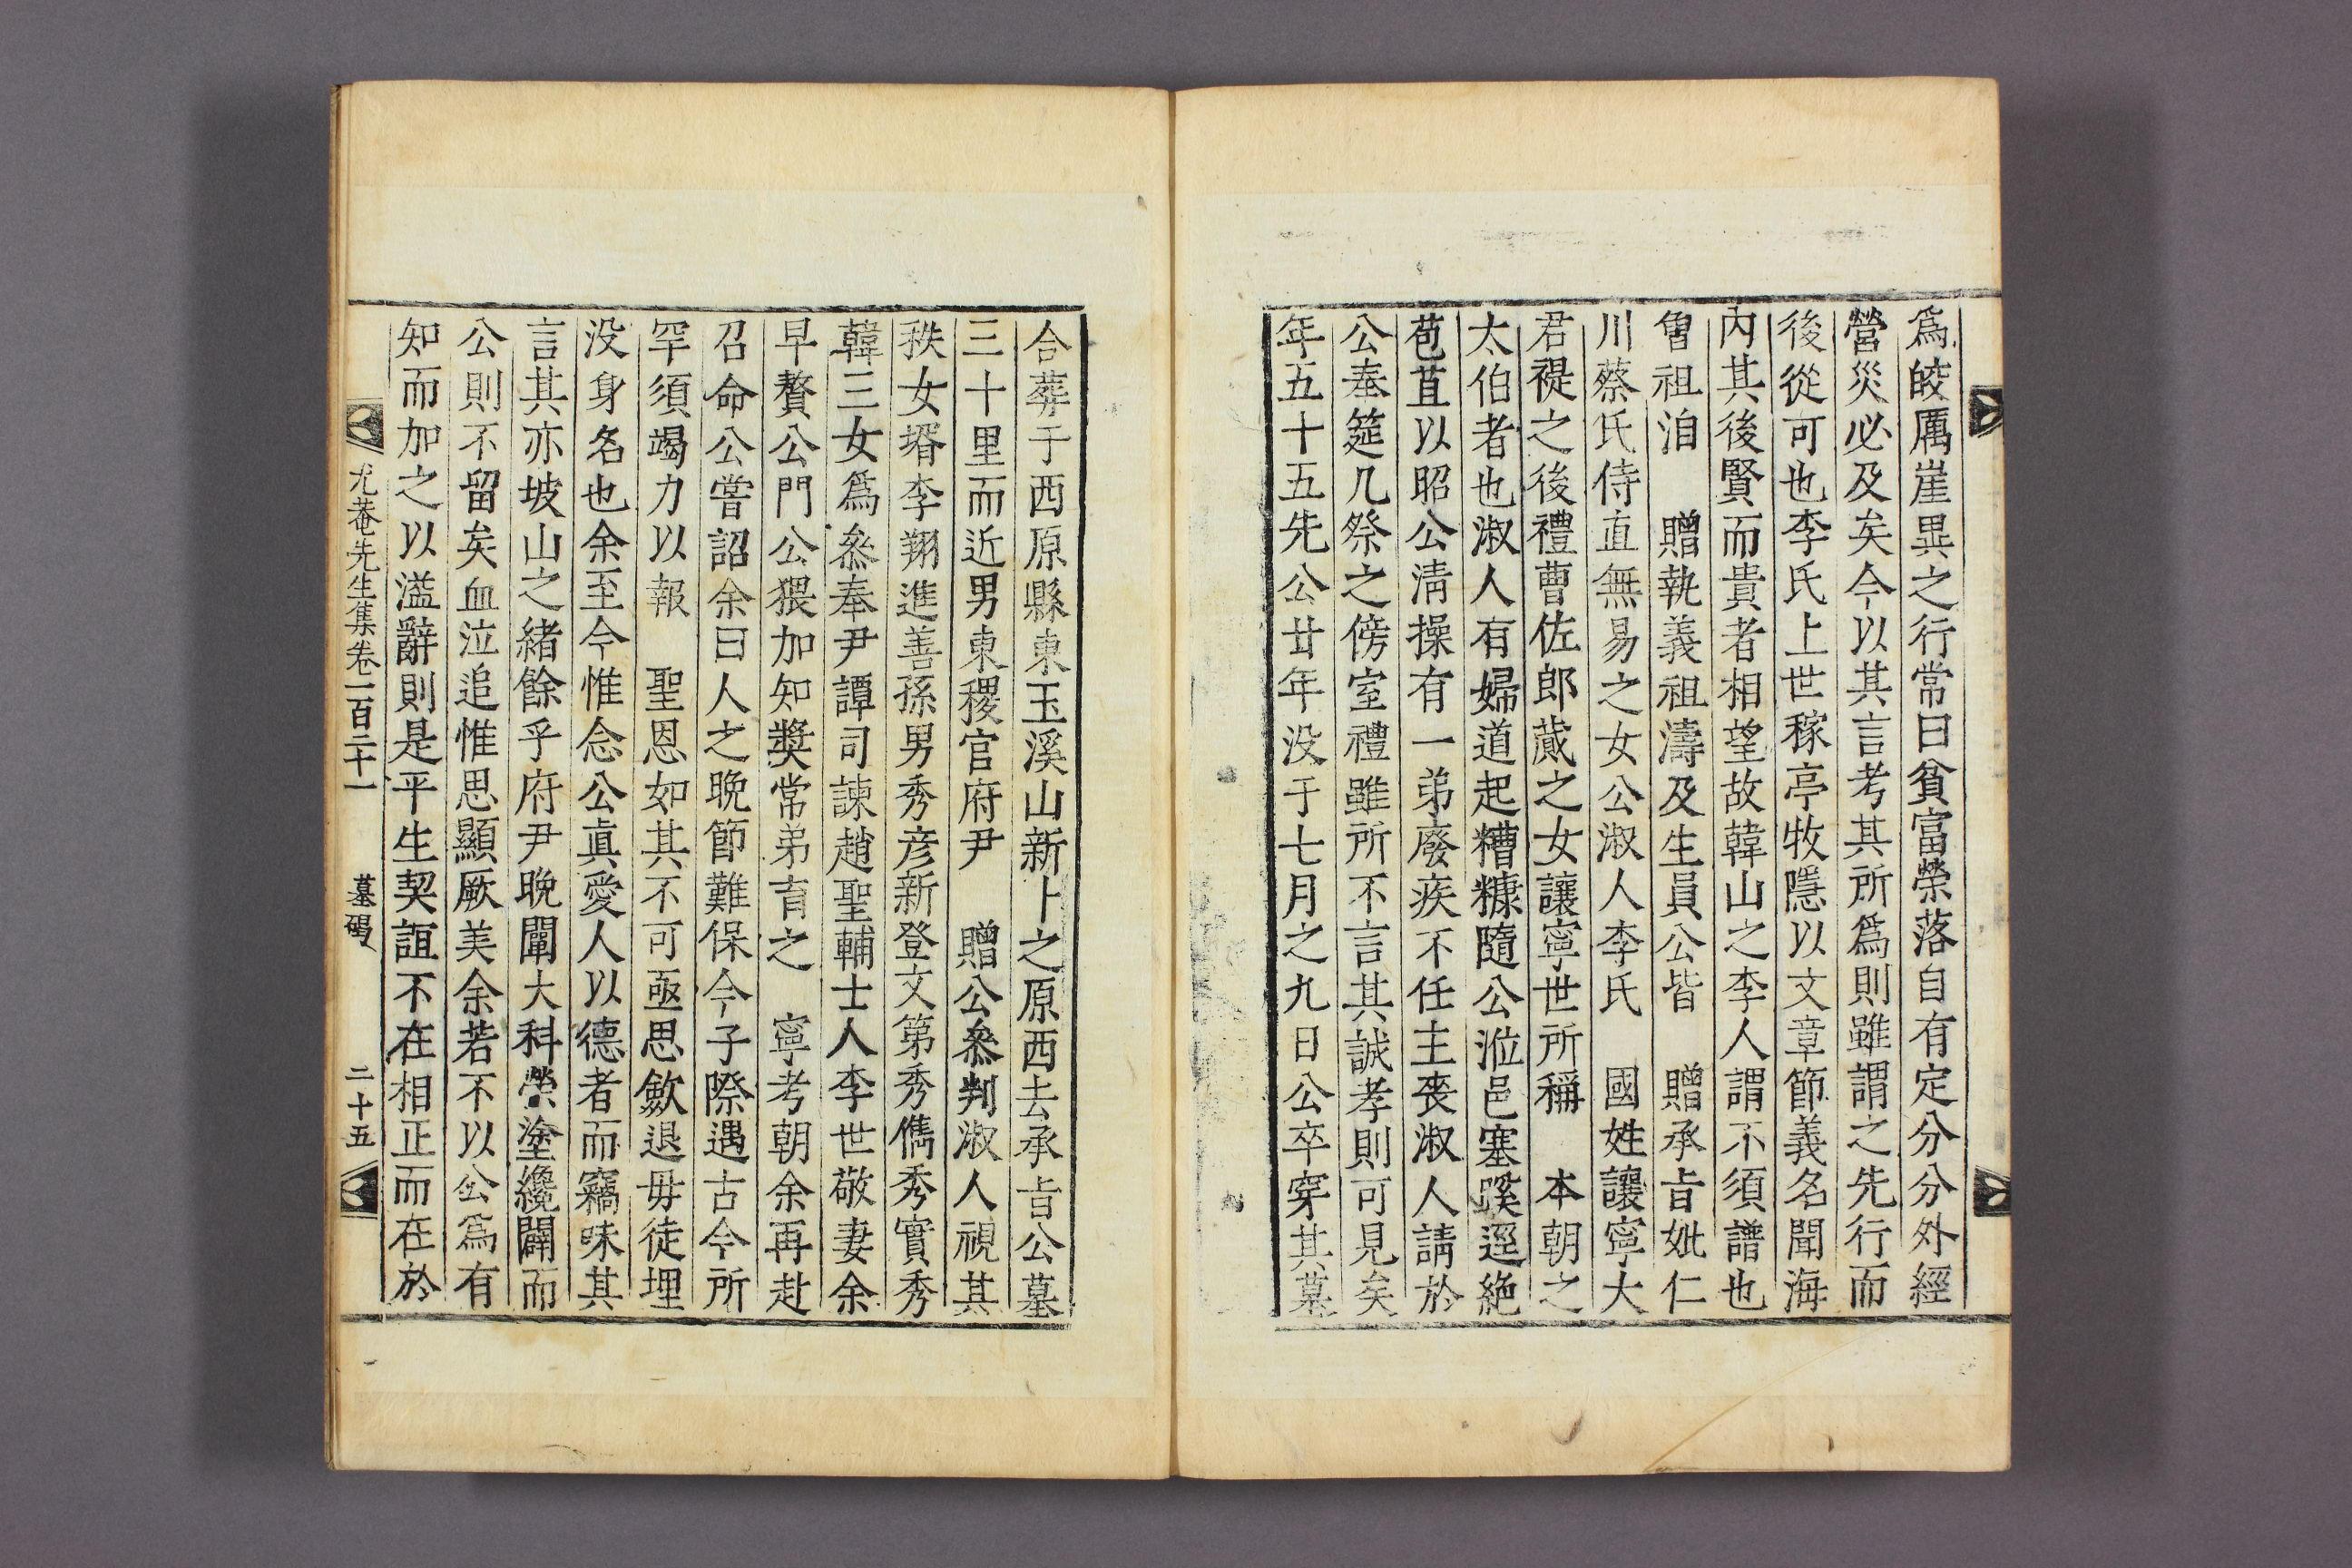 爲皎厲崖異之行常曰貧富榮落自有定分分外經
營災必及矣今以其言考其所爲則雖謂之先行而
後從可也李氏上世稼亭牧隱以文章節義名聞海
內其後賢而貴者相望故韓山之李人謂不須譜也
曾祖洎 贈執義祖濤及生員公皆 贈承旨妣仁
川蔡氏侍直無易之女公淑人李氏 國姓讓寧大
君禔之後禮曹佐郎蕆之女讓寧世所稱 本朝之
太伯者也淑人有婦道起糟糠隨公涖邑塞蹊逕絶
苞苴以昭公淸操有一弟廢疾不任主喪淑人請於
公奉筵几祭之傍室禮雖所不言其誠孝則可見矣
年五十五先公廿年没于七月之九日公卒穿其墓
合葬于西原縣東玉溪山新卜之原西去承旨公墓
三十里而近男東稷官府尹 贈公叅判淑人視其
秩女壻李翔進善孫男秀彦新登文第秀儁秀實秀
韓三女爲叅奉尹譚司諫趙聖輔士人李世敬妻余
早贅公門公猥加知奬常弟育之 寧考朝余再赴
召命公嘗詔余曰人之晩節難保今子際遇古今所
罕須竭力以報 聖恩如其不可亟思歛退毋徒埋
没身名也余至今惟念公眞愛人以德者而竊味其
言其亦坡山之緖餘乎府尹晩闡大科榮塗纔闢而
公則不留矣血泣追惟思顯厥美余若不以公爲有
知而加之以溢辭則是平生契誼不在相正而在於
尤菴先生集卷一百二十一 墓碣 二十五